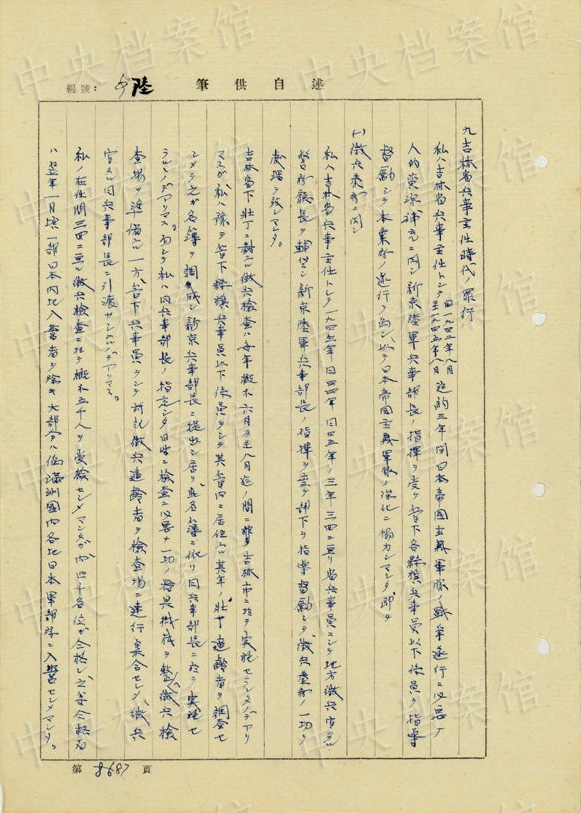 述自供筆
編號：
陸
九、吉林省兵事主任時代ノ罪行
私ハ吉林省兵事主任トシテ自一九四二年八月至一九四五年八月迄約三年間日本帝国主義軍隊ノ戦争遂行ニ必要ナ
人的資源補充ニ関シ新京陸軍兵事部長ノ指揮ヲ受ケ管下各縣旗兵事員以下係員ヲ指導
督励シテ本業務ノ遂行ヲ図リ以テ日本帝国主義軍隊ノ強化ニ協力シマシタ即チ
(一)徴兵業務ニ関シ
私ハ吉林省兵事主任トシテ一九四三年同四四年同四五年ノ三年三回ニ亘リ省兵事員ニシテ地方徴兵官タル
長ヲ輔佐シ新京陸軍兵事部長ノ指揮ヲ受ケ部下ヲ指導督励シテ徴兵業務ノ一切ヲ
処理ヲ致シマシタ。
吉林省下壮丁ニ対スル徴兵検査ハ毎年概ネ六月ヨリ八月迄ノ間ニ吉林市ニ於テ実施セラレタノデアリ
マスガ私ハ予メ管下縣旗兵事員以下係員ヲシテ其ノ管内ニ居住スル其年ノ壮丁適齢者ヲ調査セ
シメテ之ガ名簿ヲ調成シ新京兵事部長ニ提出シ居リ此名簿ニ依リ同兵事部長ニ於テ実施セ
ラルルノデアリマス。而シテ私ハ同兵事部長ノ指定シタ日時ニ検査ニ必要ナ一切ノ器具機械ヲ整ヘ徴兵検
査場ヲ準備シ一方管下兵事員ヲシテ前記徴兵適齢者ヲ検査場ニ連行集合セシメ徴兵
官又ハ同兵事部長ニ引渡サシメタノデアリマス。
私ノ在任間三回ニ亘ル徴兵検査ニ於テ概ネ五千人ヲ受検セシメマシタガ内四千名位ガ合格シ之等合格者
ハ翌年一月頃一部日本内地入営者ヲ除キ大部分ハ偽満洲国内各地日本軍部隊ニ入営セシメマシタ。
第 8687 頁
中央档案馆